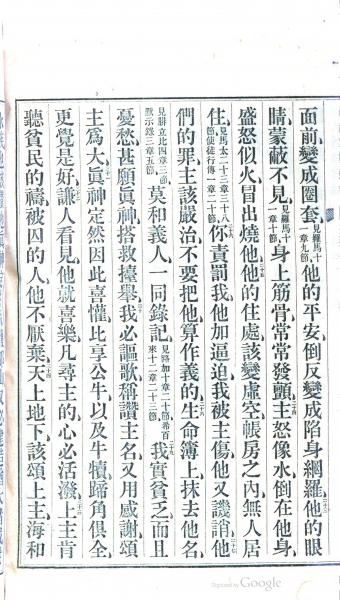 面前、變成圈套、見羅馬十一章九節、他的平安倒反變成陷身網羅、二十三他的眼
睛蒙蔽不見、見羅馬十一章十節、身上筋骨常常發顫、二十四主怒像水倒在他身、
盛怒似火冒出燒他、二十五他的住處該變虛空、帳房之內無人居
住、見馬太二十三章三十八節、使徒行傳一章二十節、二十六你責罰我、他加逼迫、我被主傷、他又譏誚他
們的罪主該嚴治、不要把他算作義的、生命簿上抹去他名、
見腓立比四章三節、默示錄三章五節、莫和義人一同錄記、見路加十章二十節、希百來十二章二十三節、二十九我實貧乏而且
憂愁、甚願真神搭救擡舉、三十我必謳歌稱讚主名、又用感謝頌
主為大、三十一真神定然因此喜懽、比享公牛以及牛犢蹄角俱全、
更覺是好、三十二謙人看見、他就喜樂、凡尋主的心必活潑、三十三上主肯
聽貧民的禱、被囚的人、他不厭棄、三十四天上地下、該頌上主、海和
Digitized by Google